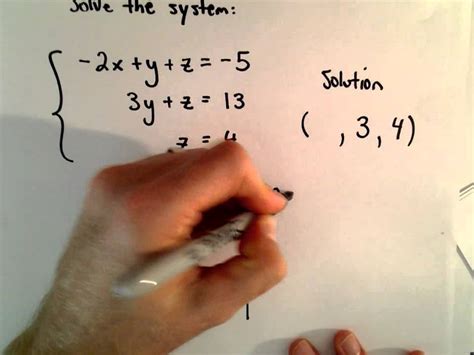 Solve the system:
-2x + y + z = -5
3y + z = 13
z = 4
Solution
( , 3, 4)